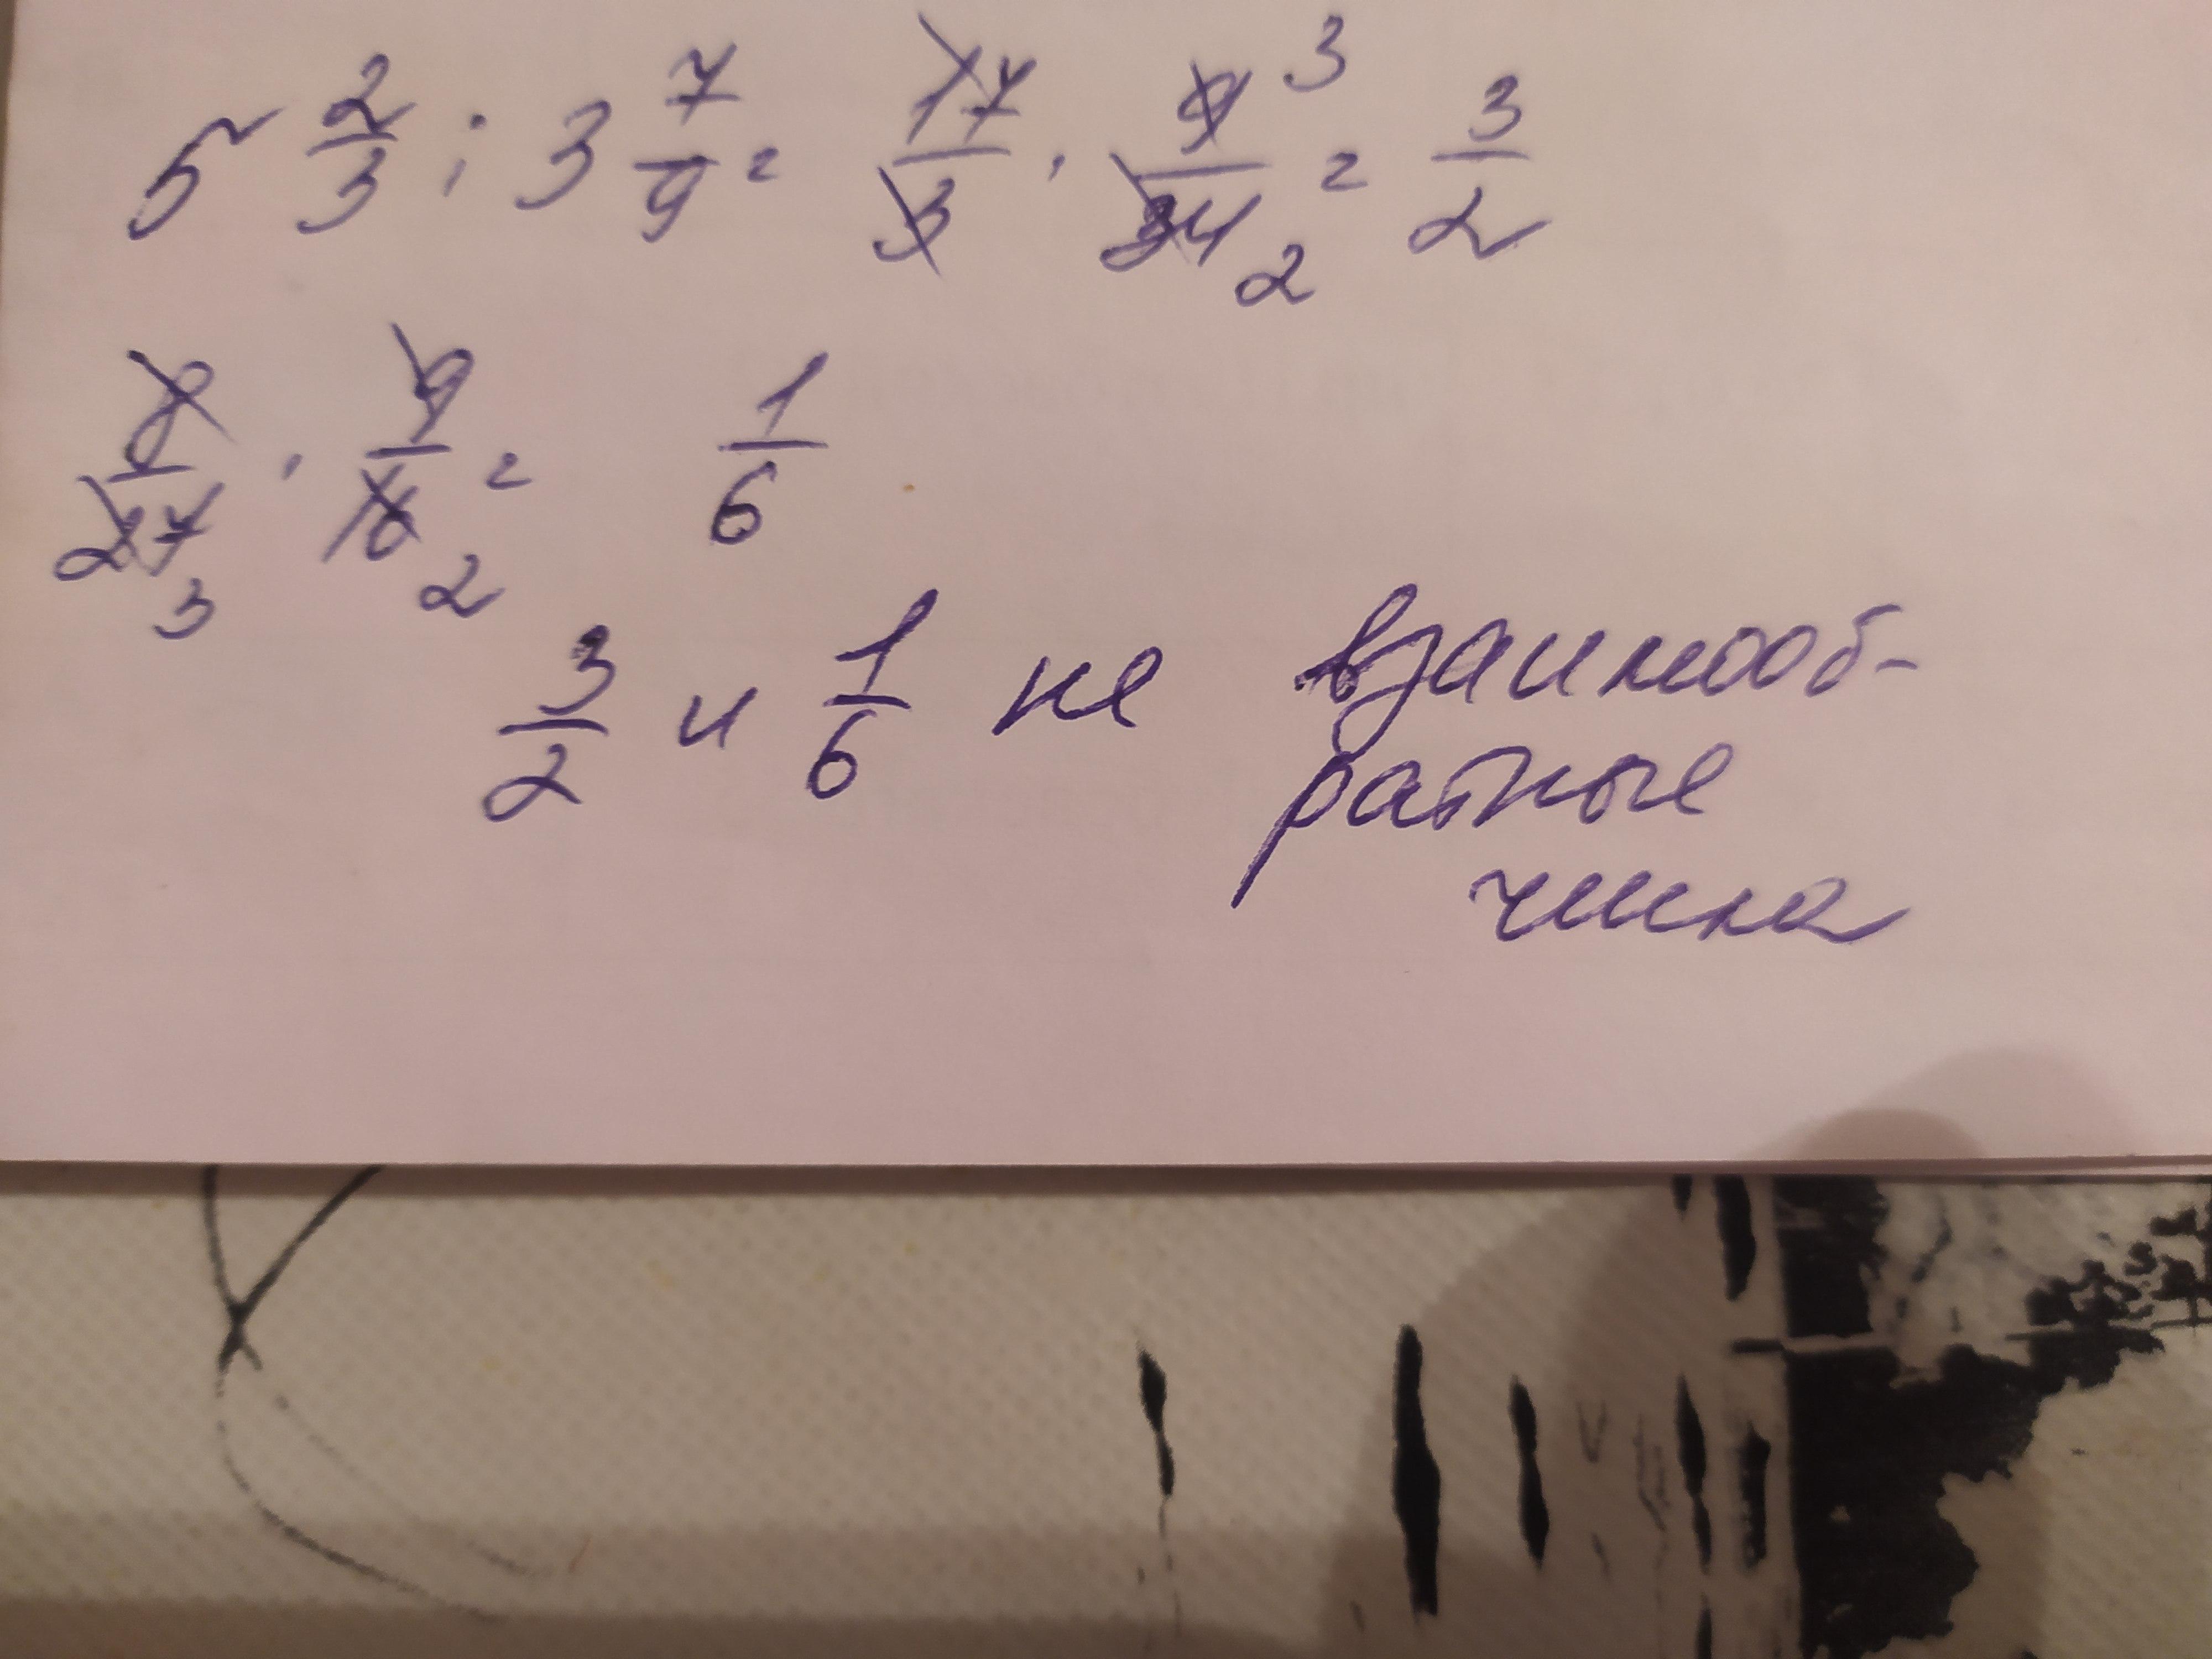 5 2/3 : 3 7/9 = 17/3 · 9/34 = 3/2
3
2
8/27 · 9/16 = 1/6
3 2
3/2 и 1/6 не взаимооб-
ратные
числа